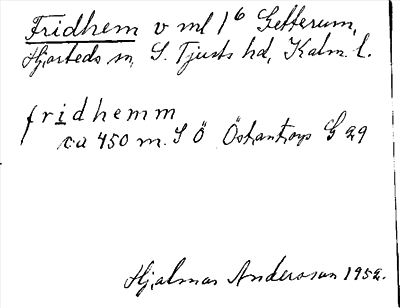 Fridhem v ml 1⁶ Getterum,
Hjorteds sn, S. Tjusts hd, Kalm. l.
fridhemm
ca 450 m. S Ö Östantorps G 29
Hjalmar Andersson 1952.